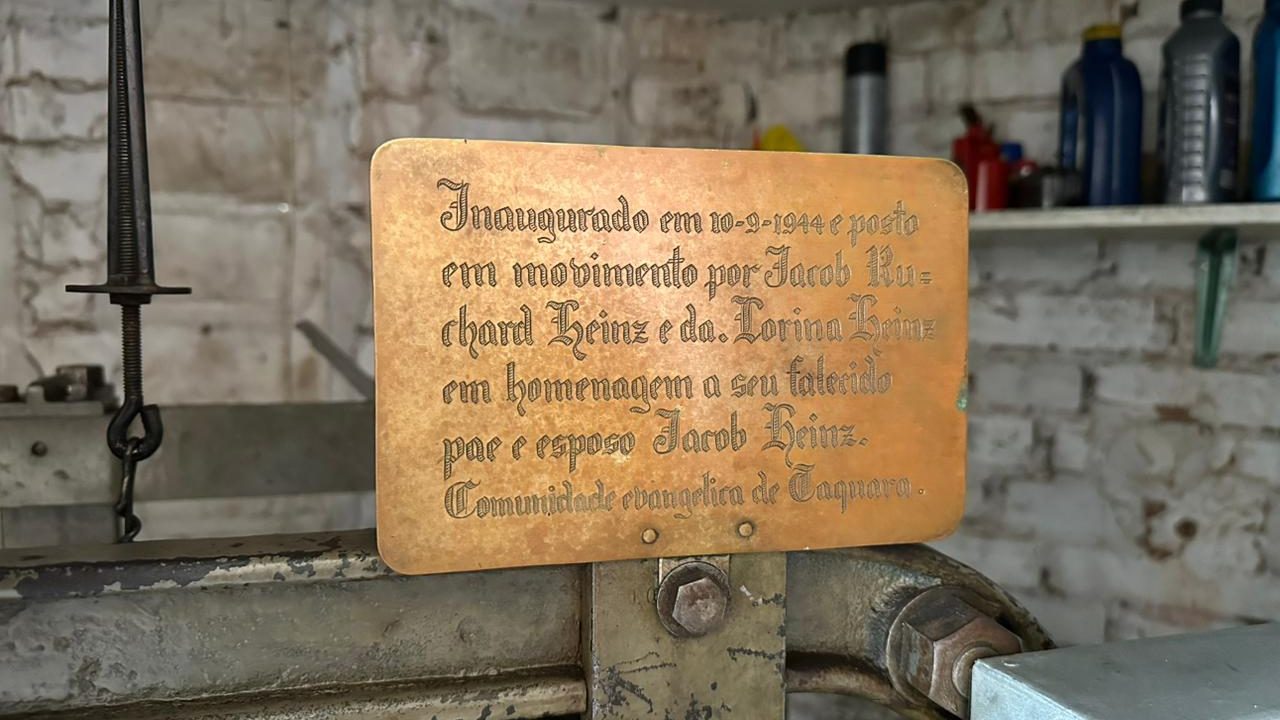 Inaugurado em 10-9-1944 e posto
em movimento por Jacob Ru=
chard Heinz e da. Lorina Heinz
em homenagem a seu falecido
pae e esposo Jacob Heinz.
Comunidade evangelica de Taquara.